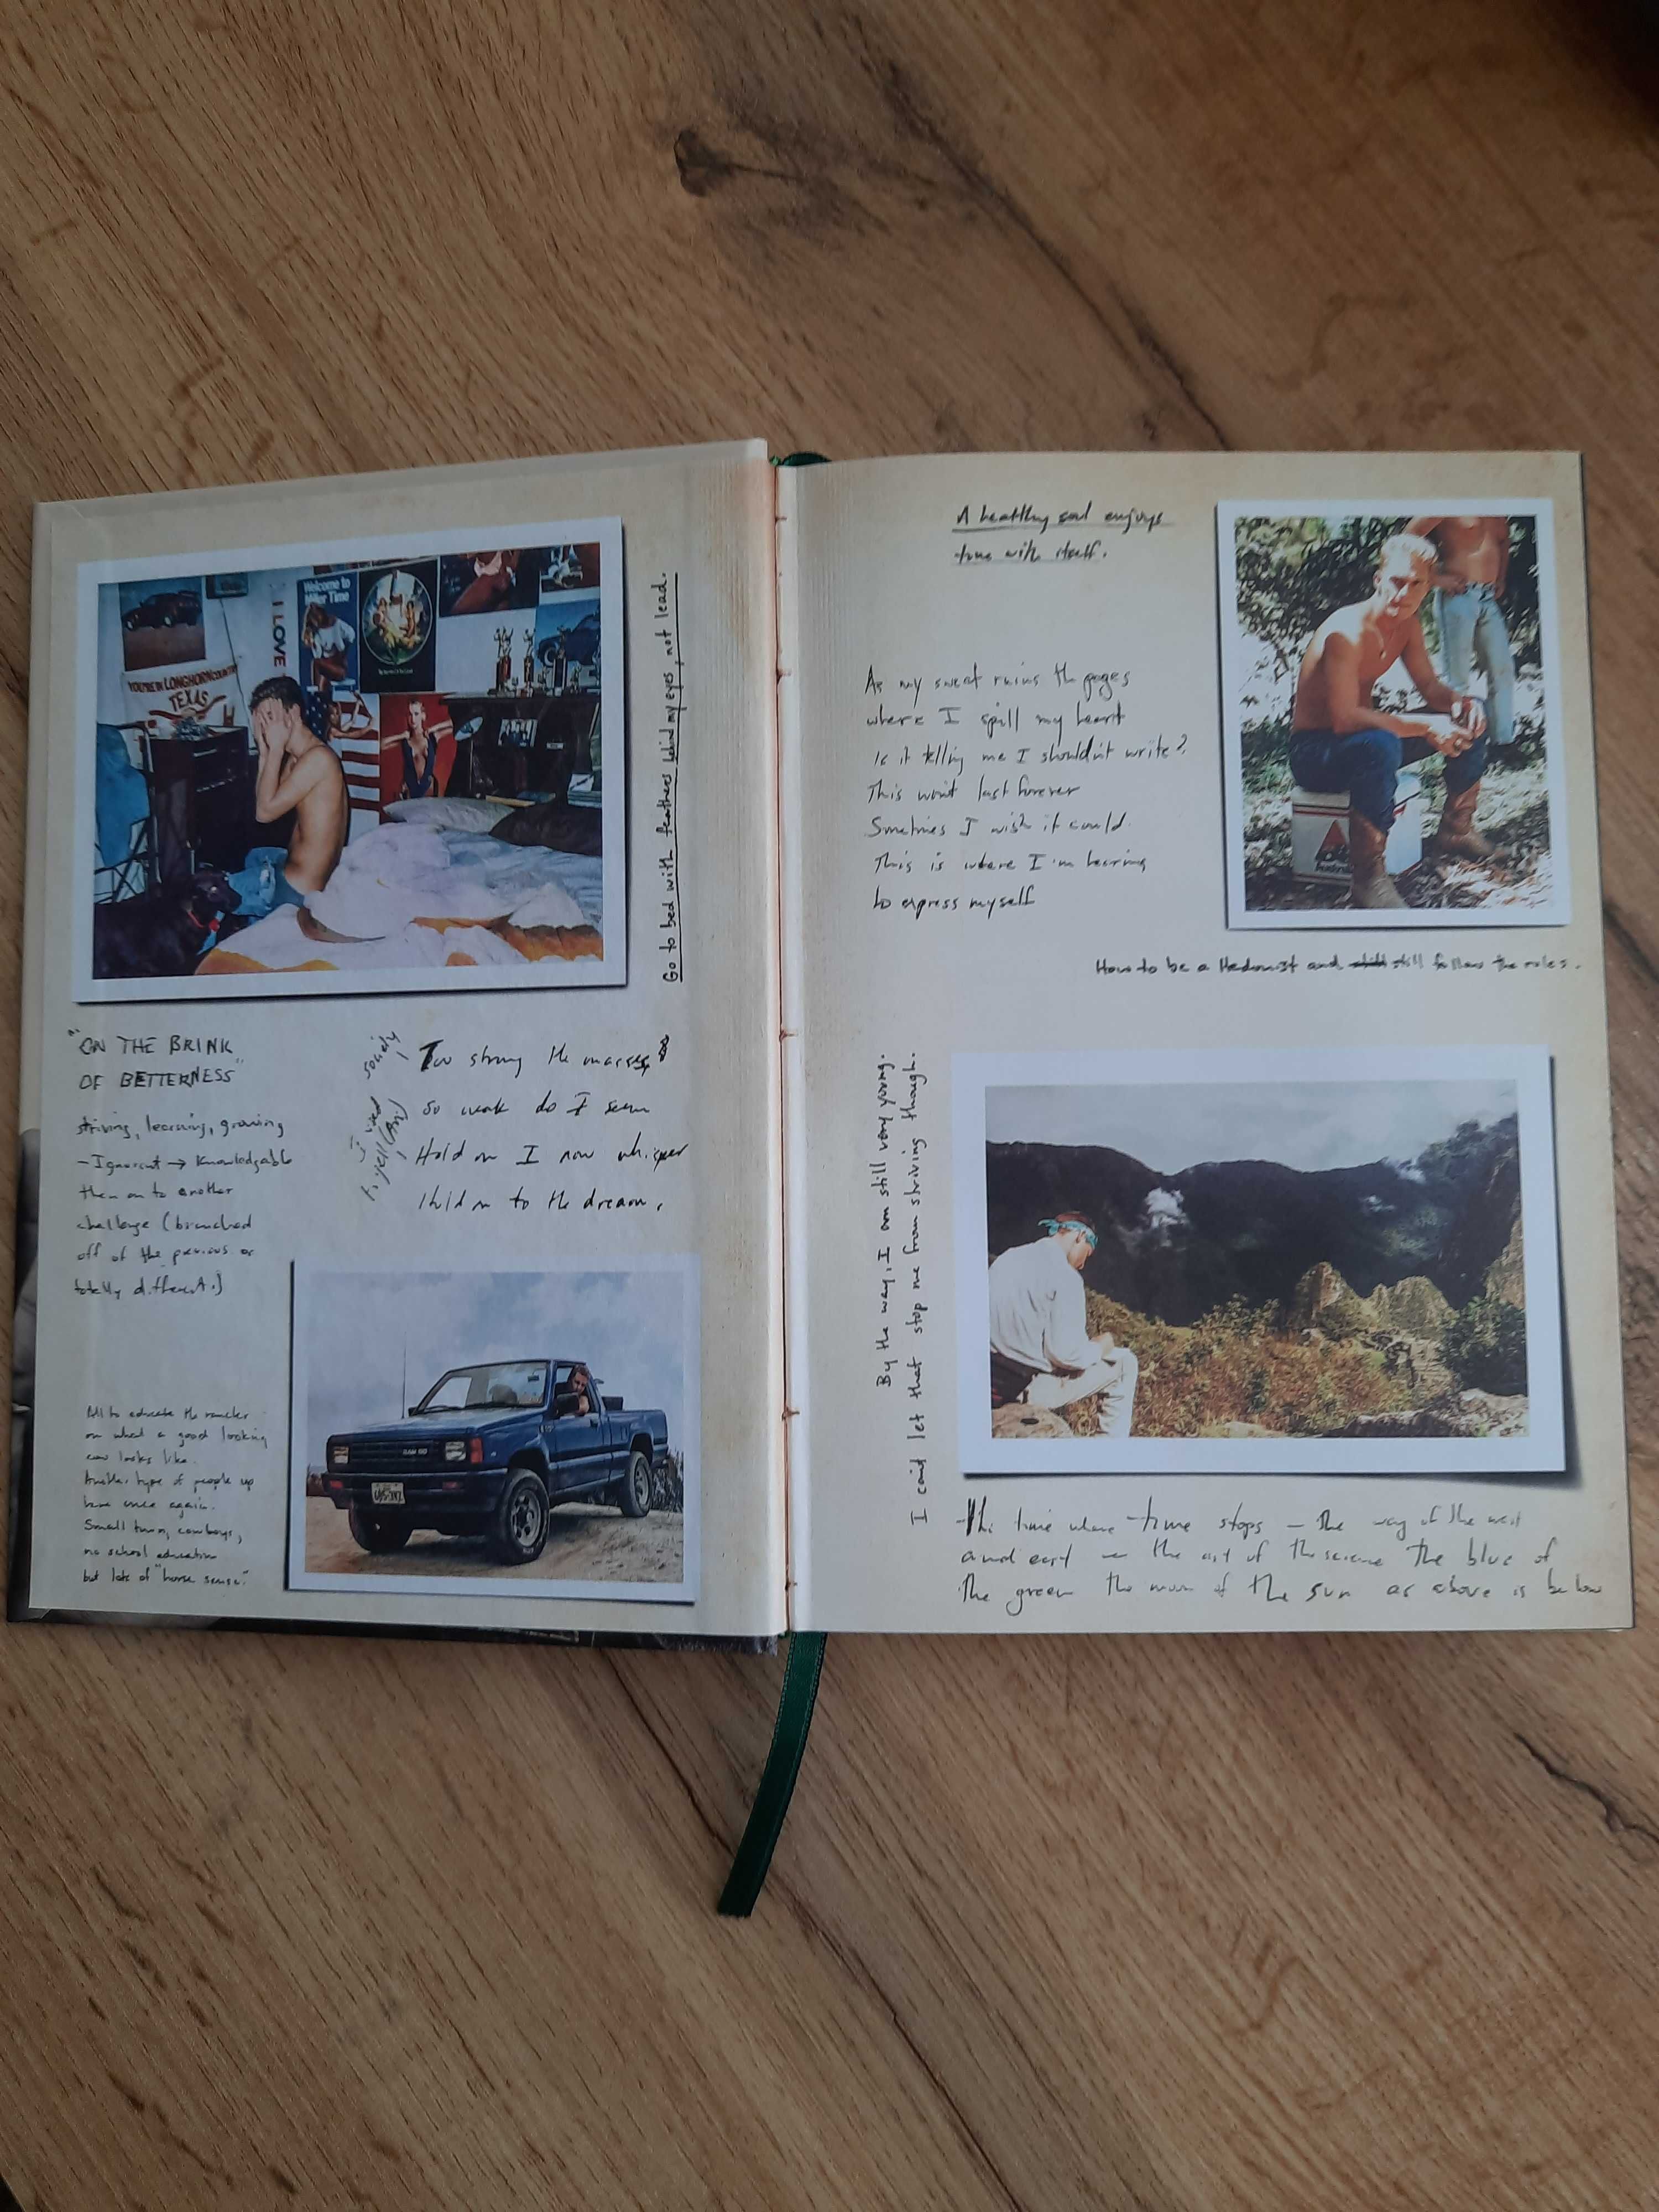 Welcome to
Miller Time
I LOVE
YOU'RE IN LONGHORN COUNTRY
TEXAS
Go to bed with feathers behind my eyes, not lead.
"ON THE BRINK
OF BETTERNESS"
striving, learning, growing
- Ignorant → Knowledgable
then on to another
challenge (branched
off of the previous or
totally different.)
society
I used
to yell
Too strong the masses
So weak do I seem
Hold on I now whisper
Hold on to the dream.
to educate the rancher
on what a good looking
cow looks like.
Another type of people up
here once again.
Small town, cowboys,
no school education
but lots of "horse sense".
RAM 50
A healthy soul enjoys
time with itself.
As my sweat ruins the pages
where I spill my heart
Is it telling me I shouldn't write?
This won't last forever
Sometimes I wish it could.
This is where I'm learning
to express myself
How to be a Hedonist and still still follow the rules.
By the way, I am still very young.
I can't let that stop me from striving though.
The time where time stops – the way of the west
and east – the art of the science the blue of
the green the moon of the sun as above is below